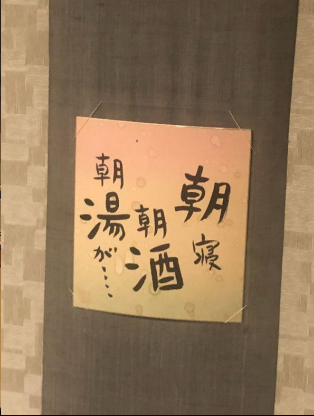 朝寝
朝酒
朝湯が…